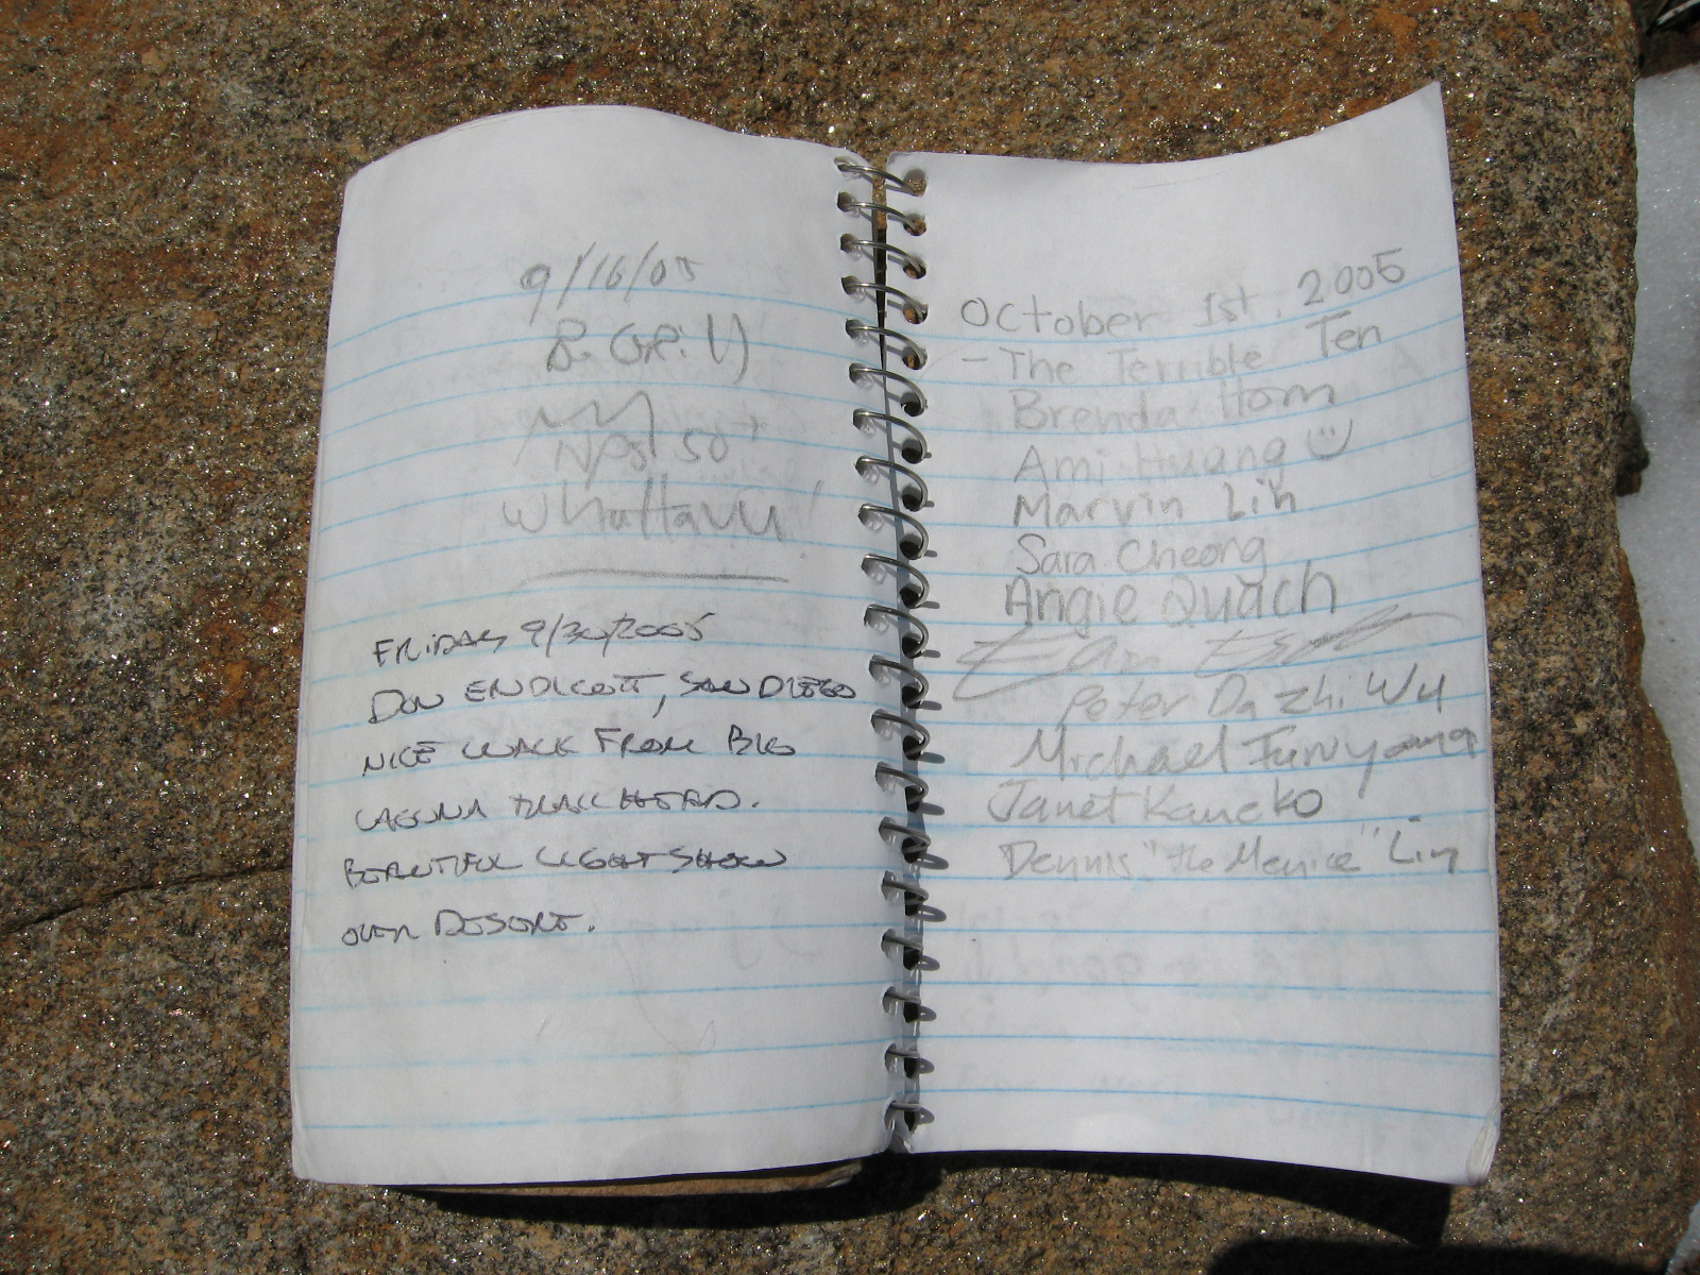 9/16/05
Whattavu!
FRIDAY 9/30/2005
DON ENDICOTT, SAN DIEGO
NICE WALK FROM BIG
LAGUNA TRAILHEAD.
BEAUTIFUL LIGHT SHOW
OVER DESERT.
October 1st, 2005
- The Terrible Ten
Brenda Hom
Ami Huang
Marvin Lin
Sara Cheong
Angie Quach
Peter Da Zhi Wu
Michael Furuyama
Janet Kaneko
Dennis "the Menice" Lin